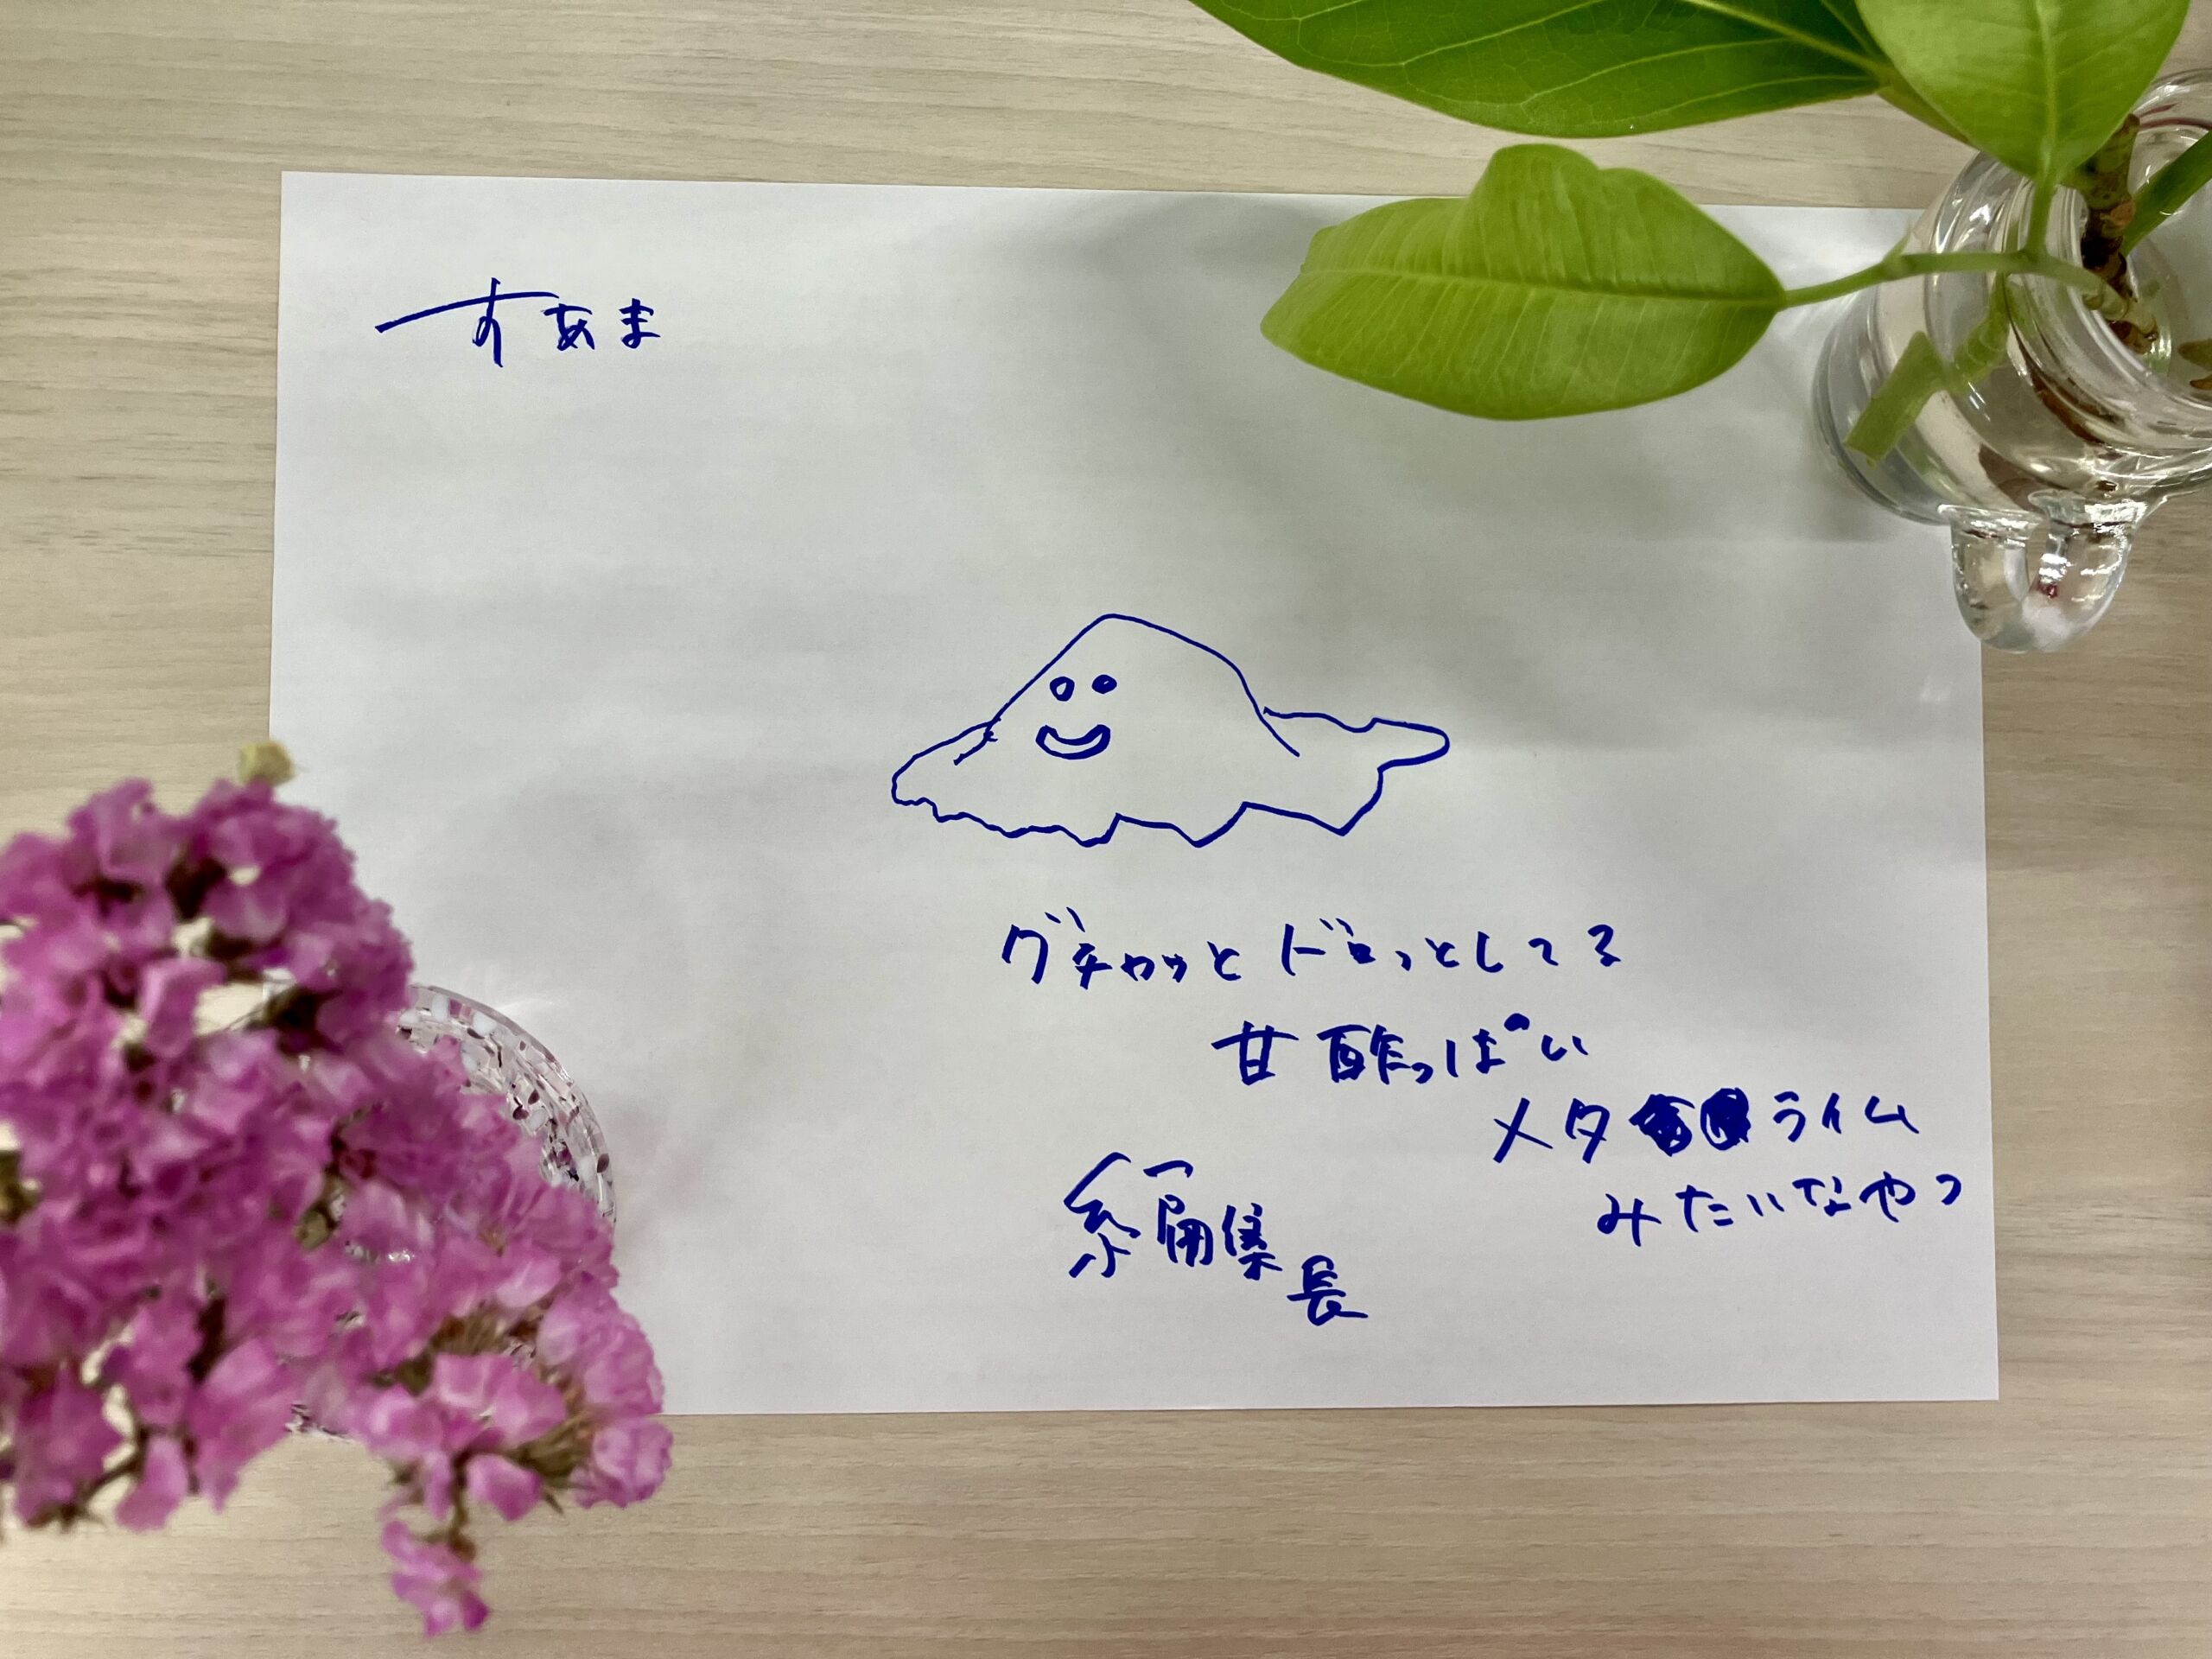 すあま
グチャッとドロっとしてる
甘酢っぱい
メタライム
みたいなやつ
編集長